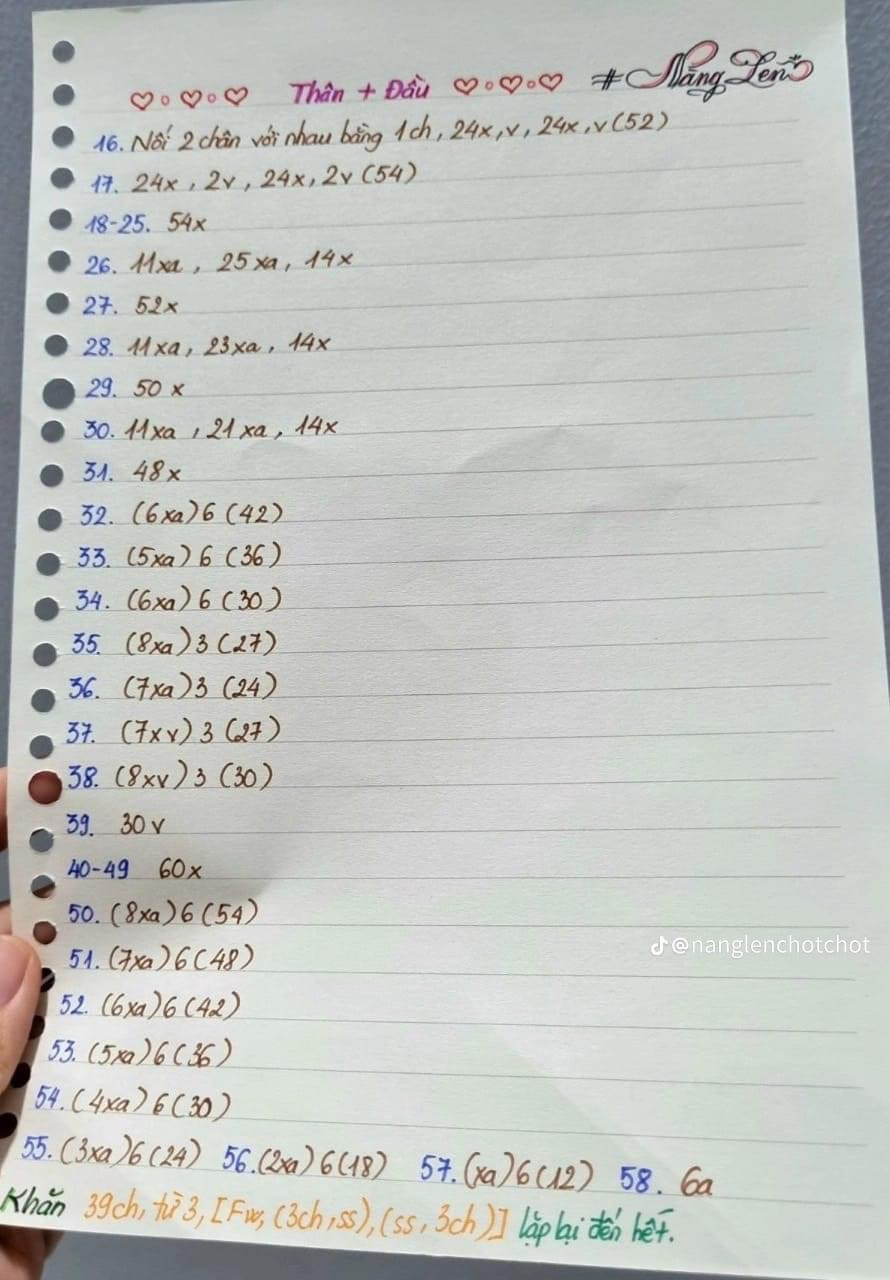 Thân + Đầu #Nàng Len
16. Nối 2 chân với nhau bằng 1ch, 24x, v, 24x, v (52)
17. 24x, 2v, 24x, 2v (54)
18-25. 54x
26. 11xa, 25xa, 14x
27. 52x
28. 11xa, 23xa, 14x
29. 50x
30. 11xa, 21xa, 14x
31. 48x
32. (6xa)6 (42)
33. (5xa)6 (36)
34. (6xa)6 (30)
35. (8xa)3 (27)
36. (7xa)3 (24)
37. (7xv)3 (27)
38. (8xv)3 (30)
39. 30v
40-49 60x
50. (8xa)6 (54)
51. (7xa)6 (48)
52. (6xa)6 (42)
53. (5xa)6 (36)
54. (4xa)6 (30)
55. (3xa)6 (24) 56. (2xa)6 (18) 57. (xa)6 (12) 58. 6a
Khăn 39ch, từ 3, [Fw, (3ch, ss), (ss, 3ch)] lặp lại đến hết.
@nanglenchotchot